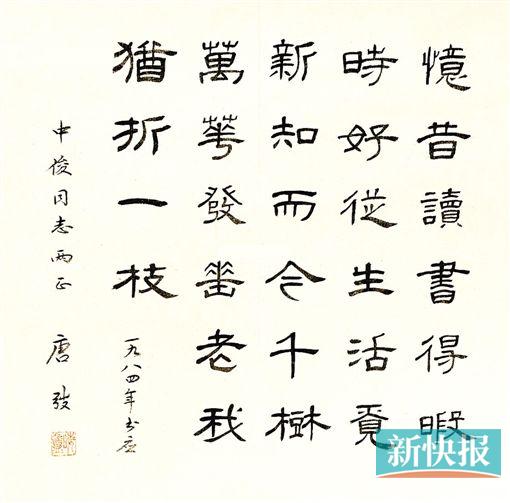 憶昔讀書得暇
時好從生活覓
新知而今千樹
萬華發垂老我
猶折一枝
一九八四年書應
中俊同志兩正
唐弢
新快报